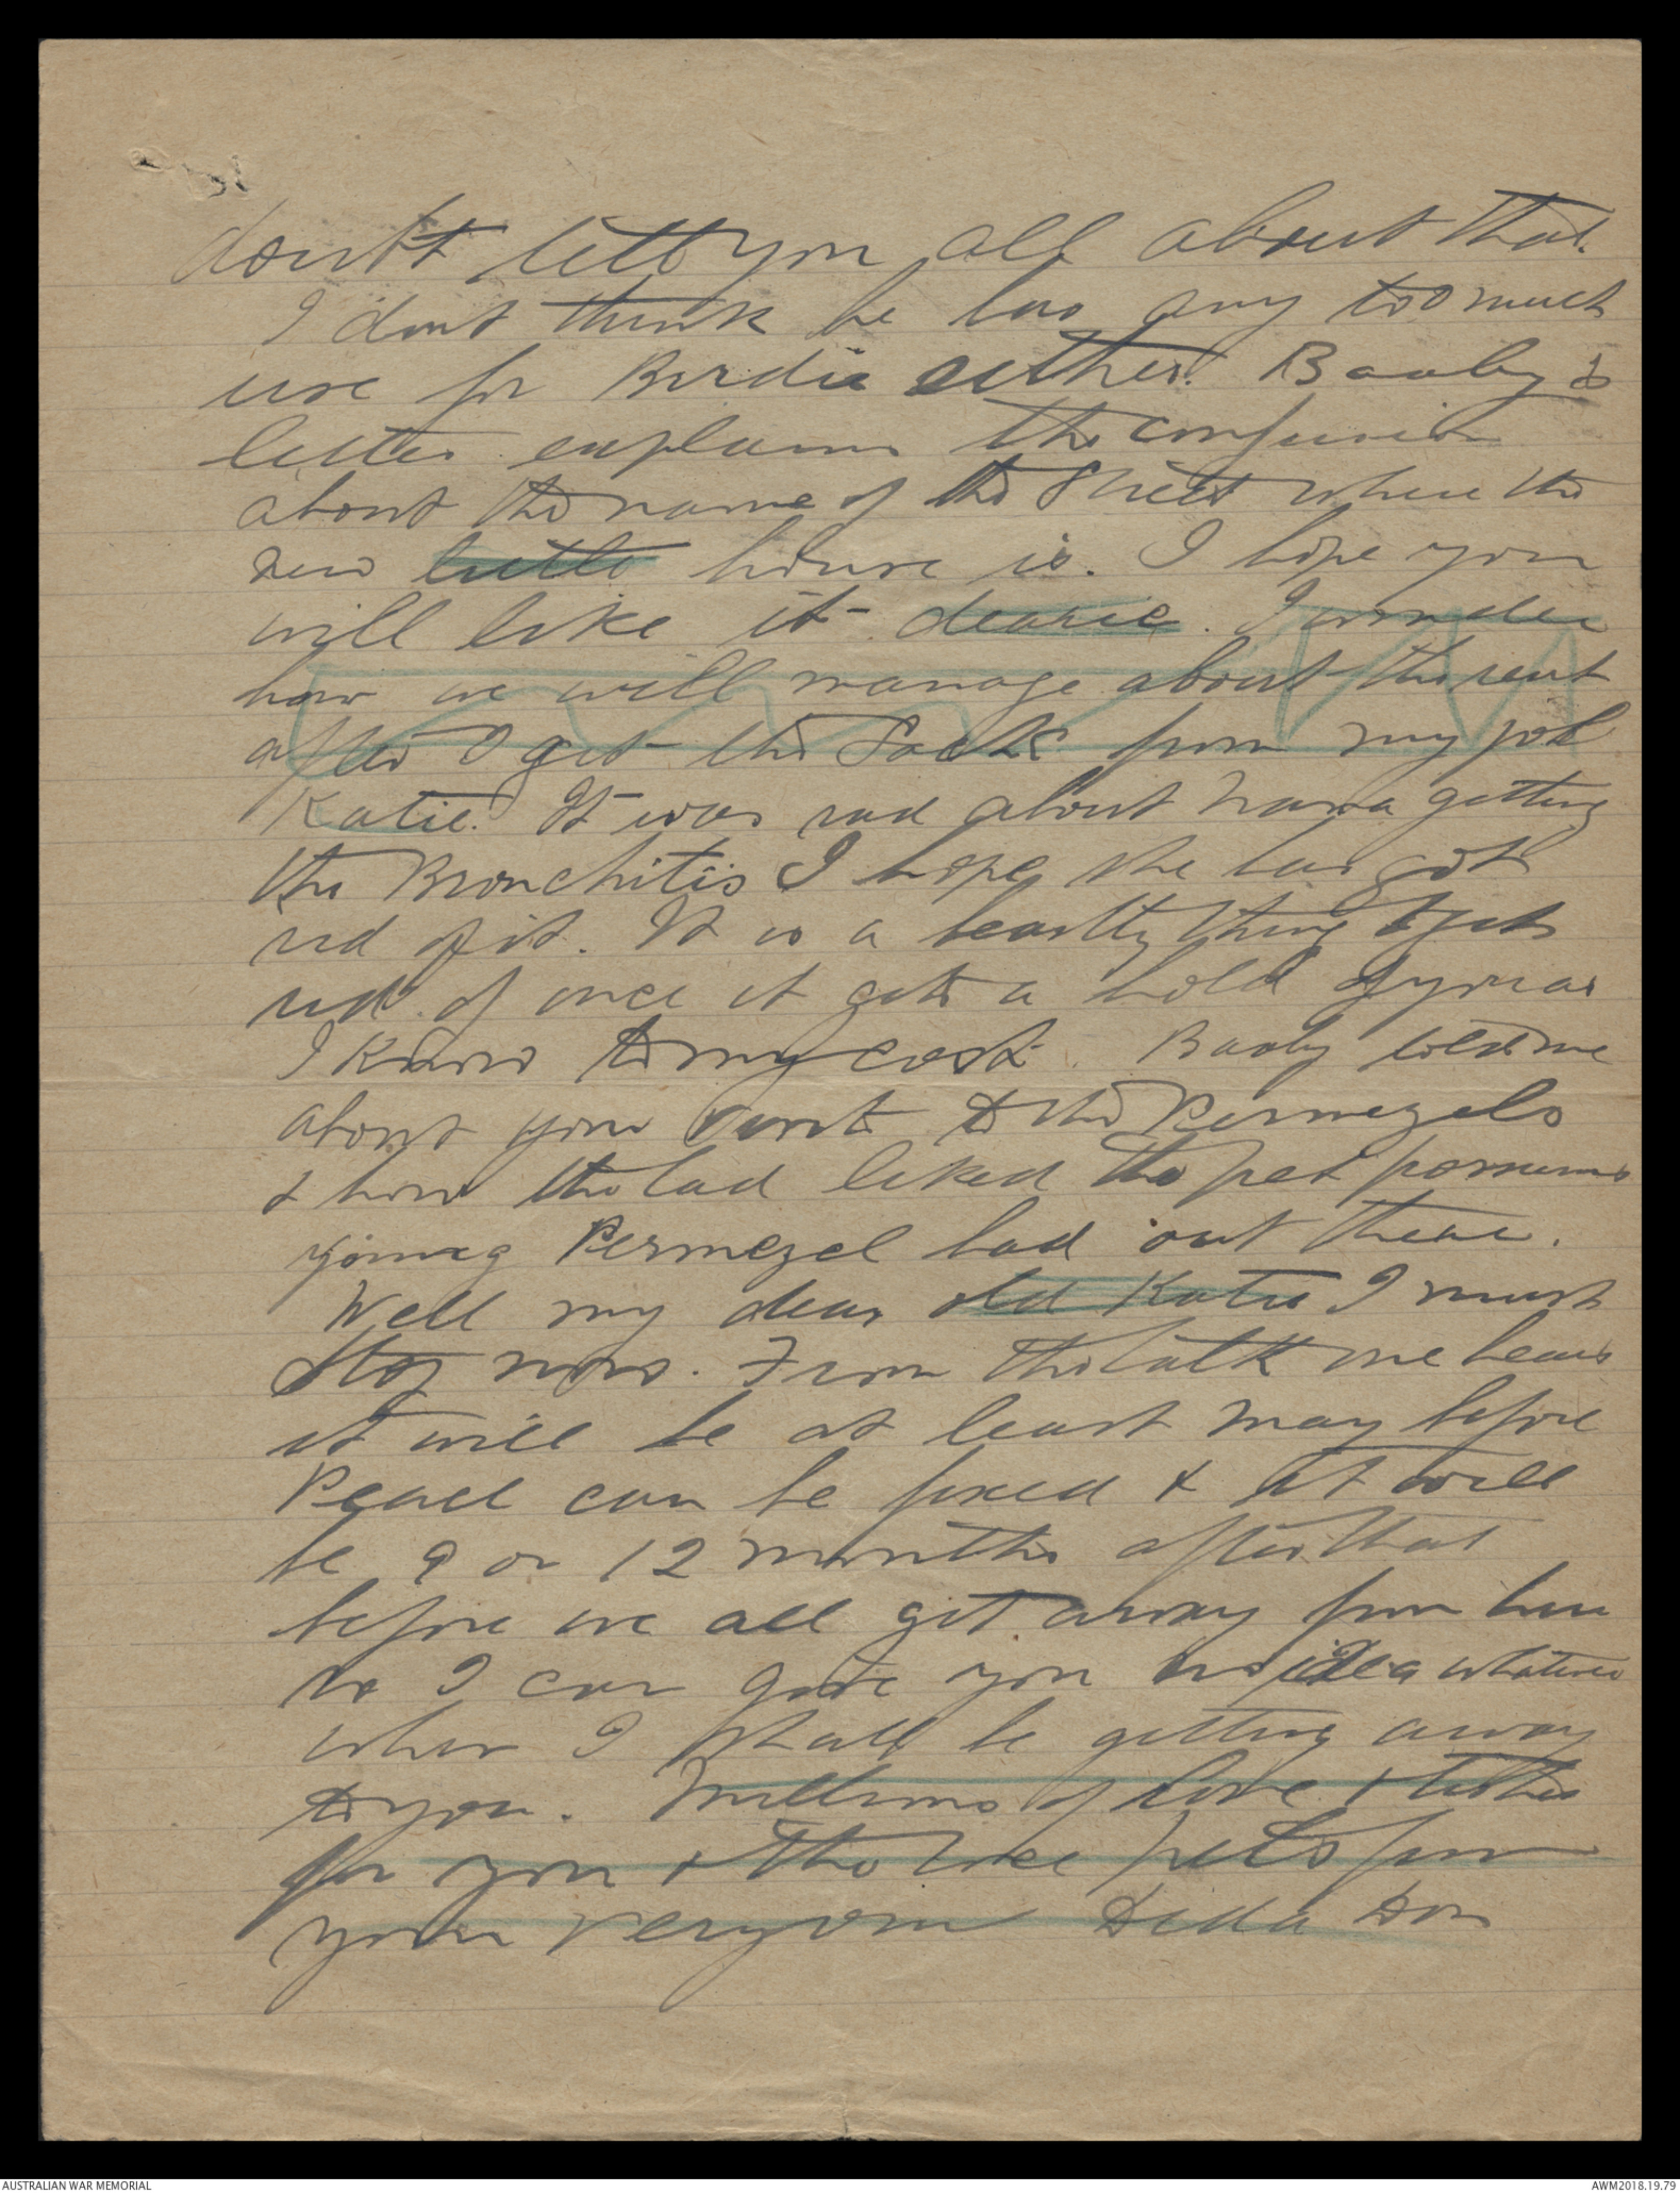 doubt tell you all about that.
I dont think he has any too much
use for Birdie either. Baaby's
letter explains the confusion
about the name of the Street where the
new little house is. I hope you
will like it dearie. I wonder
how we will manage about the rent
after I get the Sack from my job
Katie. It was sad about Nana getting
the Bronchitis I hope she has got
rid of it. It is a beastly thing to get
rid of once it gets a hold of you as
I know to my cost. Baaby told me
about your visit to the Permezels
& how the lad liked the pet possums
young Permezel had out there.
Well my dear old Katie I must
stop now. From the talk one hears
it will be at least May before
Peace can be fixed & it will
be 9 or 12 months after that
before we all get away from here
so I can give you no idea whatever
when I shall be getting away
to you. Millions of love & kisses
for you & the wee pets from
your very own Dida Don
AUSTRALIAN WAR MEMORIAL
AWM2018.19.79